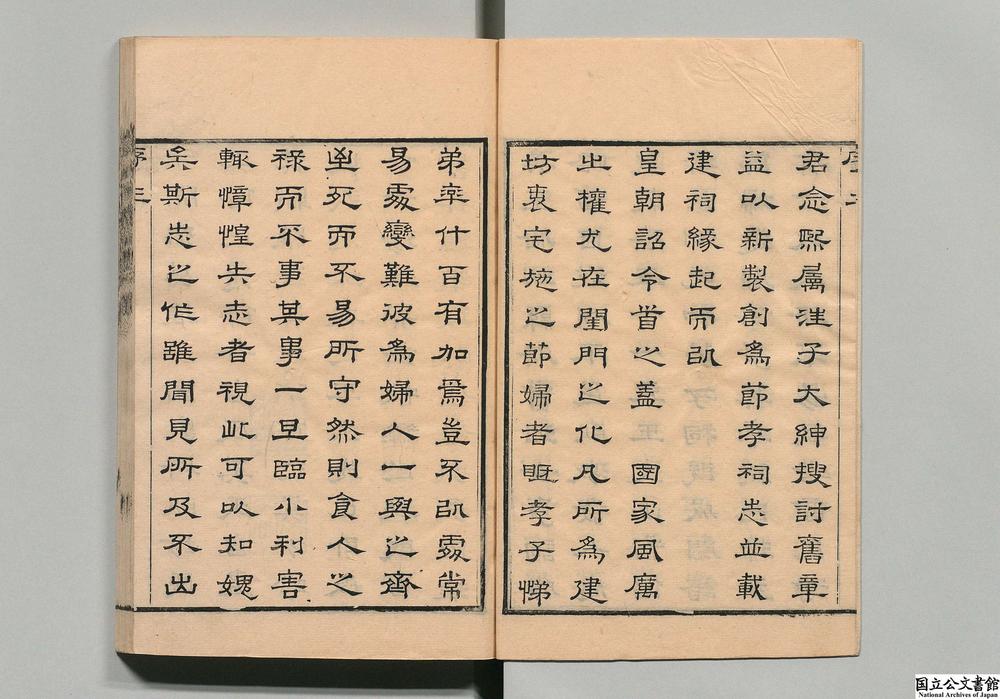 序二
君念熙屬汪子大紳搜討舊章
益以新製創為節孝祠志並載
建祠緣起而以
皇朝詔令首之蓋國家風厲
之權尤在閨門之化凡所為建
坊表宅施之節婦者眂孝子悌
弟率什百有加焉豈不以處常
易處變難彼為婦人一與之齊
至死而不易所守然則食人之
祿而不事其事一旦臨小利害
輒慞惶失志者視此可以知媿
矣斯志之作雖聞見所及不出
序三
国立公文書館
National Archives of Japan